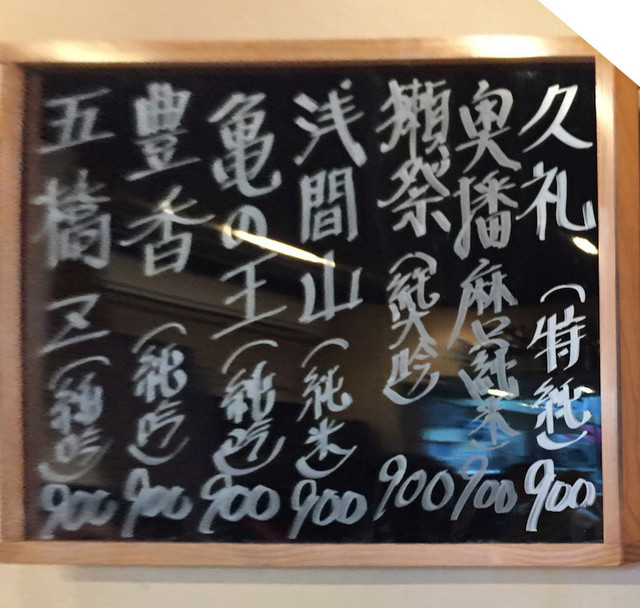 久礼（特純）900
奥播磨純米900
獺祭（純大吟）900
浅間山（純米）900
亀の王（純吟）900
豊香（純吟）900
五橋（純吟）900